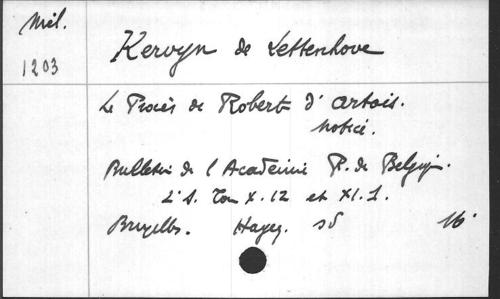 Mél.
1203
Kervyn de Lettenhove
Le Procès de Robert d'Artois.
Notice.
Bulletin de l'Académie R. de Belgiq.
2e S. Tom X. 12 et XI. 1.
Bruxelles. Hayez. sd 16°